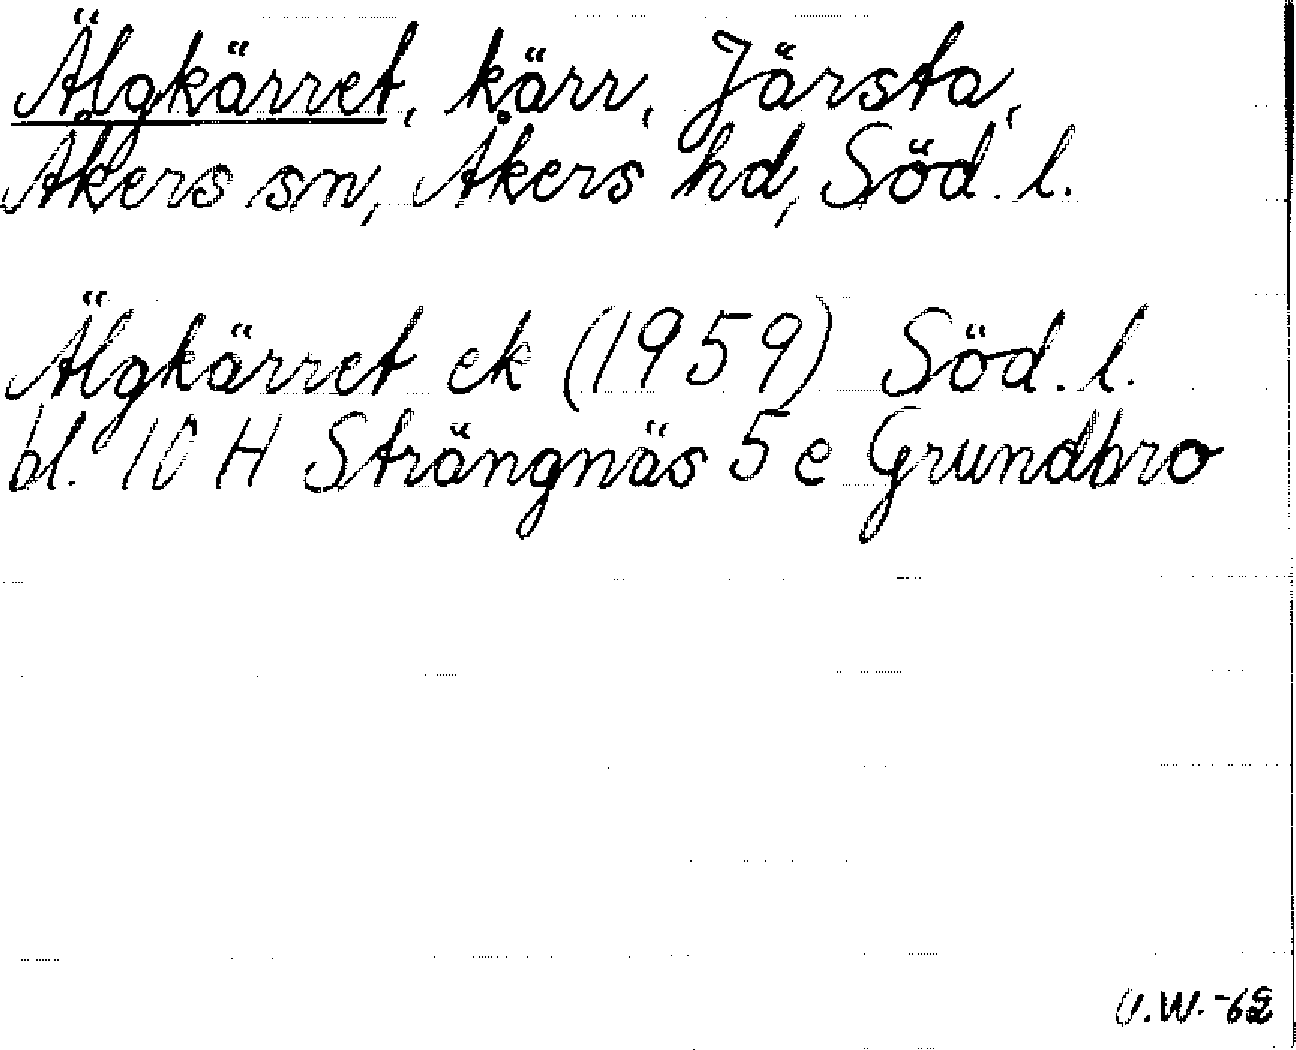 Älgkärret, kärr, Järsta,
Åkers sn, Åkers hd, Söd. l.
Älgkärret ek (1959) Söd. l.
bl. 10 H Strängnäs 5 e Grundbro
U.W. -62